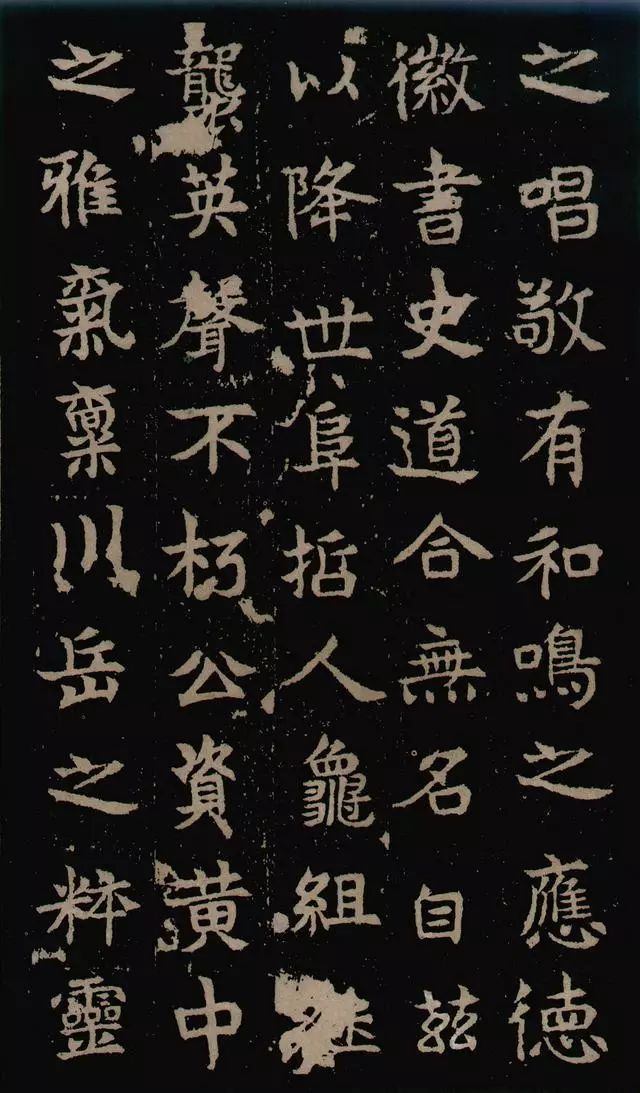 之唱敬有和鳴之應德
徽書史道合無名自玆
以降世阜哲人龜組継
龔英聲不朽公資黄中
之雅氣稟川岳之粹靈